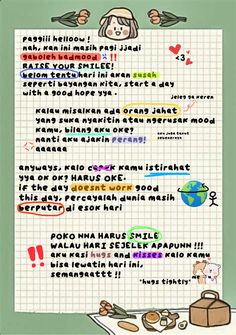 paggiii helloow !
nah, kan ini masih pagi jjadi
gaboleh badmood !!
RAISE YOUR SMILEE!
belom tentu hari ini akan susah
seperti bayangan kita, start a day
with a good hope yya.
<3
jeleg ga keren
kalau misalkan ada orang jahat
yang suka nyakitin atau ngerusak mood
kamu, bilang aku oke?
nanti aku ajakin perang!
aaaaaa
aku juda turut
anyways, kalo capek kamu istirahat
yya ok ok? HARUS OKE.
if the day doesnt work good
this day, percayalah dunia masih
berputar di esok hari
POKO NNA HARUS SMILE
WALAU HARI SEJELEK APAPUNN !!!
aku kasi hugs and kisses kalo kamu
bisa lewatin hari ini,
semangaattt !!
"hugs tightly"